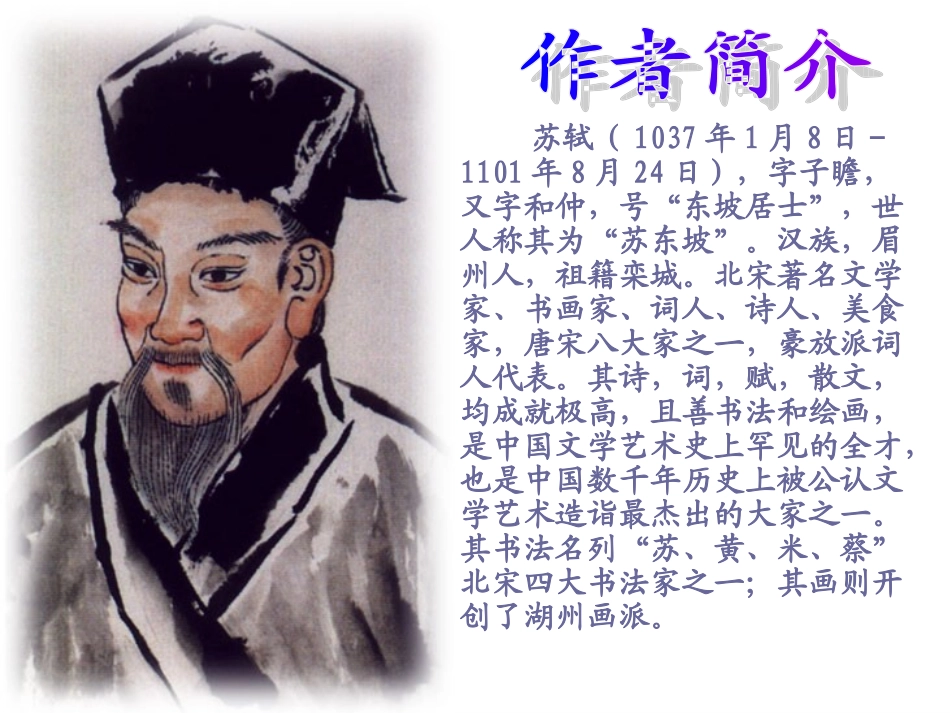 作者简介
苏轼（1037年1月8日－
1101年8月24日），字子瞻，
又字和仲，号“东坡居士”，世
人称其为“苏东坡”。汉族，眉
州人，祖籍栾城。北宋著名文学
家、书画家、词人、诗人、美食
家，唐宋八大家之一，豪放派词
人代表。其诗，词，赋，散文，
均成就极高，且善书法和绘画，
是中国文学艺术史上罕见的全才，
也是中国数千年历史上被公认文
学艺术造诣最杰出的大家之一。
其书法名列“苏、黄、米、蔡”
北宋四大书法家之一；其画则开
创了湖州画派。